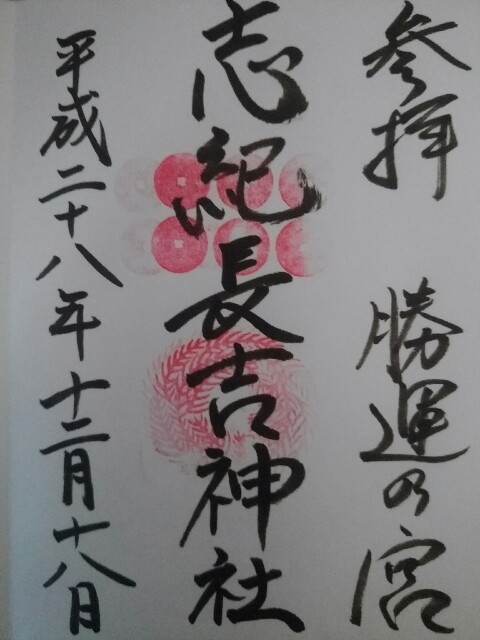 参拝 勝運の宮
志紀長吉神社
平成二十八年十二月十八日